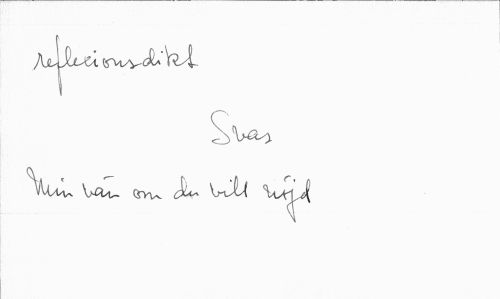 reflexionsdikt
Svar
Min vän om du vill nöjd